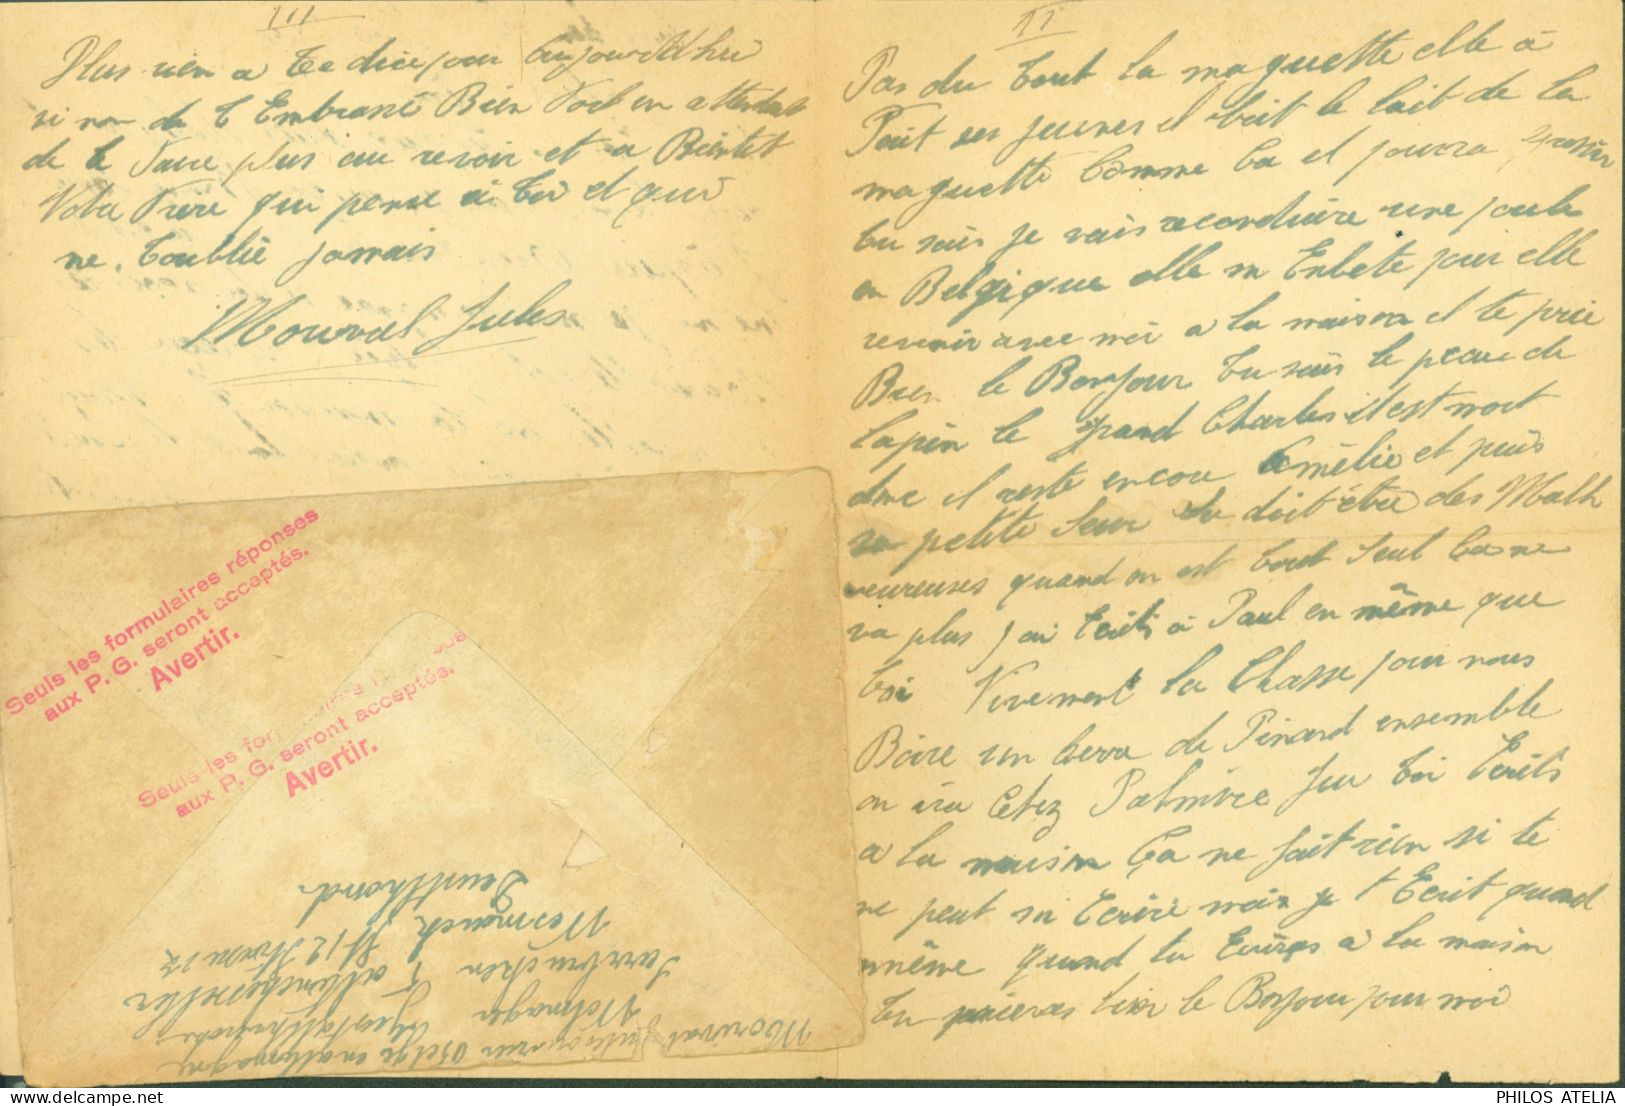 II
Pas du tout la maquette elle à
Fait ses jeunes il boit le lait de la
maquette comme ca il pourra grossir
tu sais je vais recondiure une poule
en Belgique elle m Enbete pour elle
revenir avec moi a la maison il te prie
Bien le Bonjour tu sais le peau de
lapin le grand Charles il est mort
donc il reste encou Amélie et puis
sa petite Seur Su doit être des Malh
eureuses quand on est tout Seul Ca ne
va plus j ai Ecrits à Paul en même que
toi Vivement la Chasse pour nous
Boire un verre de Pinard ensemble
on ira Chez Palmire Jeu toi Ecrits
a la maison Ça ne fait rien si te
ne peut m Ecrire mais je t Ecrit quand
même quand tu Ecriras à la maison
tu prieras bien le Bonjour pour moi
III
Plus rien a te dire pour Aujourd'hui
si non de t Embrassé Bien Fort en attendant
de le Faire plus au revoir et a Bientot
Vota Frere qui pense à toi et qui
ne t oublie jamais
Mourval Jules
Seuls les formulaires réponses
aux P. G. seront acceptés.
Avertir.
Seuls les for
aux P. G. seront acceptés.
Avertir.
Mourval Jules ouvrier Belge en allemagne
Sarrbrucken
PHILOS ATELIA